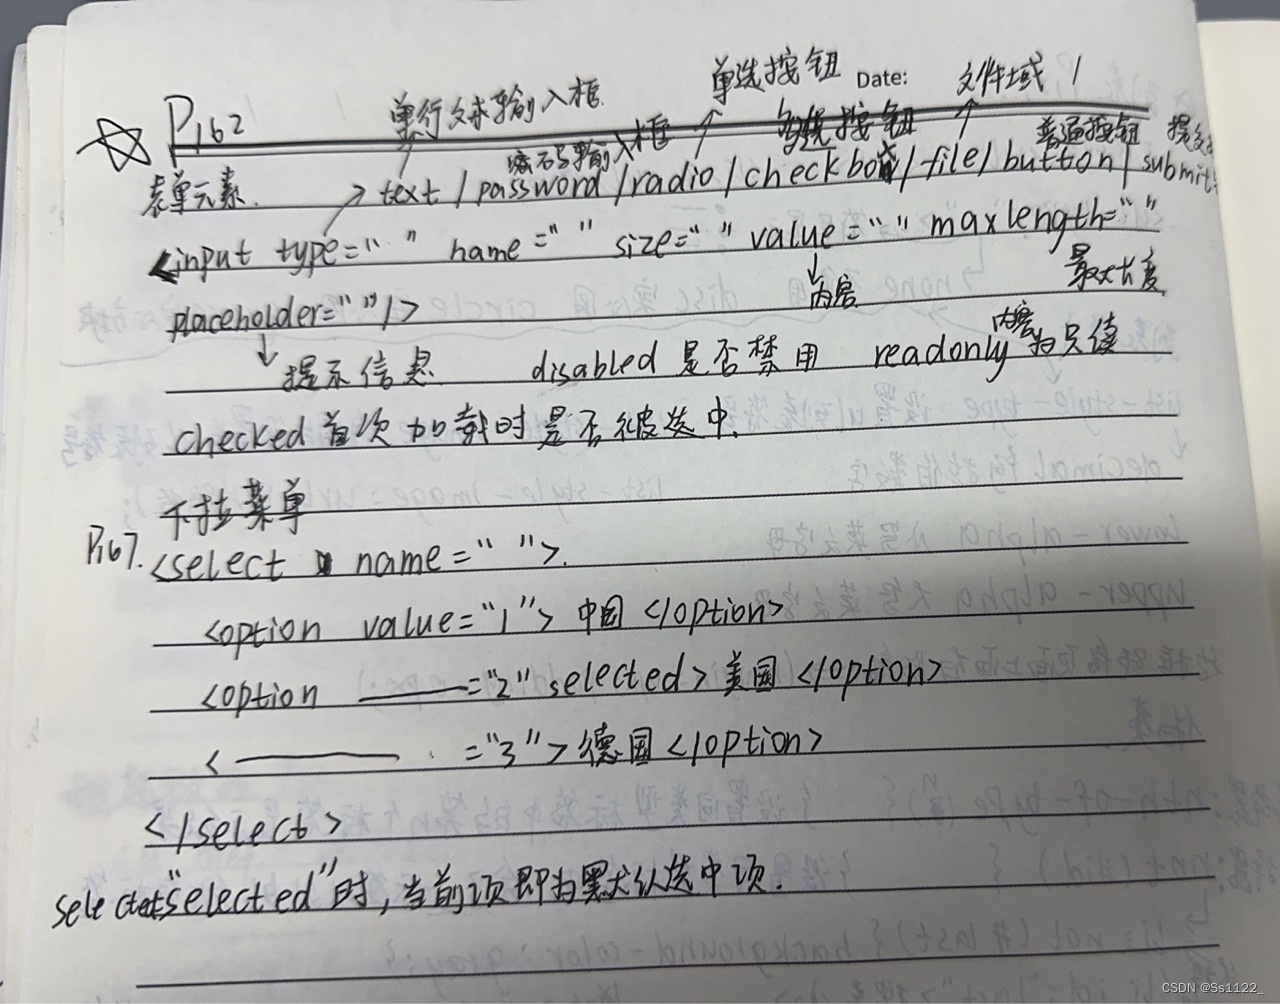 单选按钮 Date: 文件域 1
P162 单行文本输入框 多选按钮
密码输入框 普通按钮 提交
表单元素. text / password / radio / checkbox / file / button / submit
<input type=“ ” name=“ ” size=“ ” value=“ ” maxlength=“ ”
内容 最大长度
placeholder=“ ”/>
提示信息 disabled 是否禁用 readonly 内容为只读
checked 首次加载时是否被选中.
下拉菜单
P167. <select name=“ ”>.
<option value=“1”> 中国 </option>
<option ——=“2” selected> 美国 </option>
< —— =“3”> 德国 </option>
</select>
selected=“selected”时, 当前项即为默认选中项.
CSDN @Ss1122_